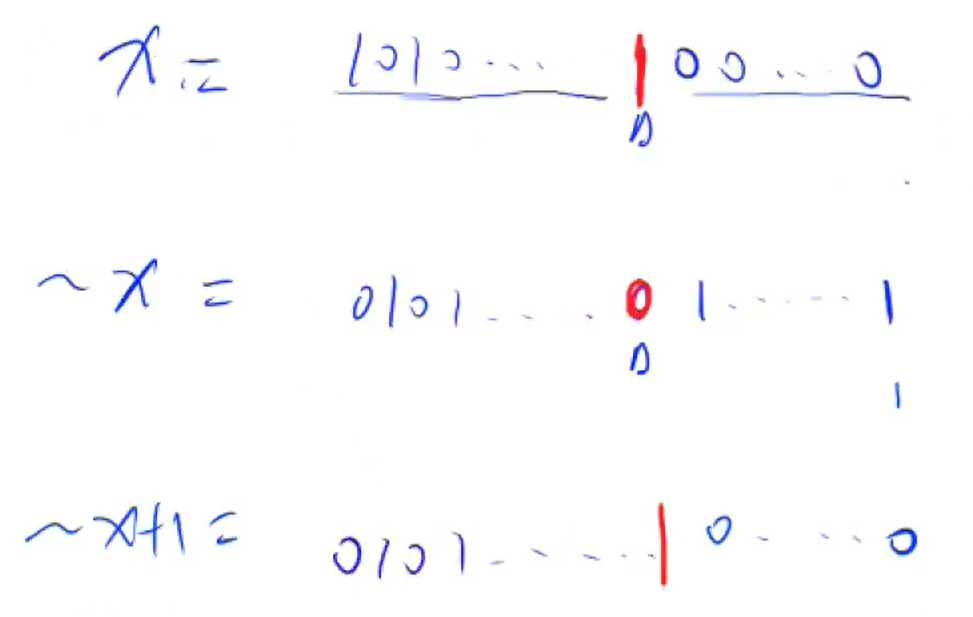 x = 1010... 1 00...0
~x = 0101.... 0 1......1
1
~x+1 = 0101......1 0....0